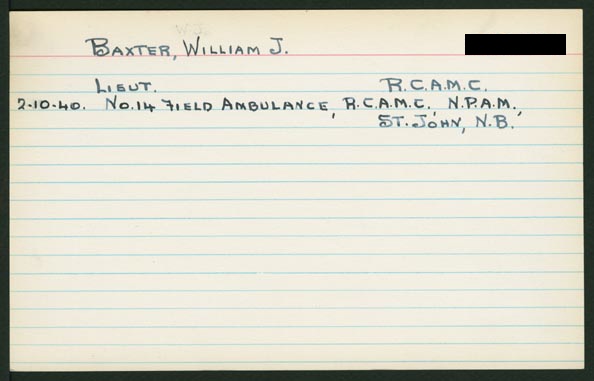 W.J.
BAXTER, WILLIAM J.
LIEUT. R.C.A.M.C.
2-10-40. NO.14 FIELD AMBULANCE, R.C.A.M.C. N.P.A.M.,
ST. JOHN, N.B.